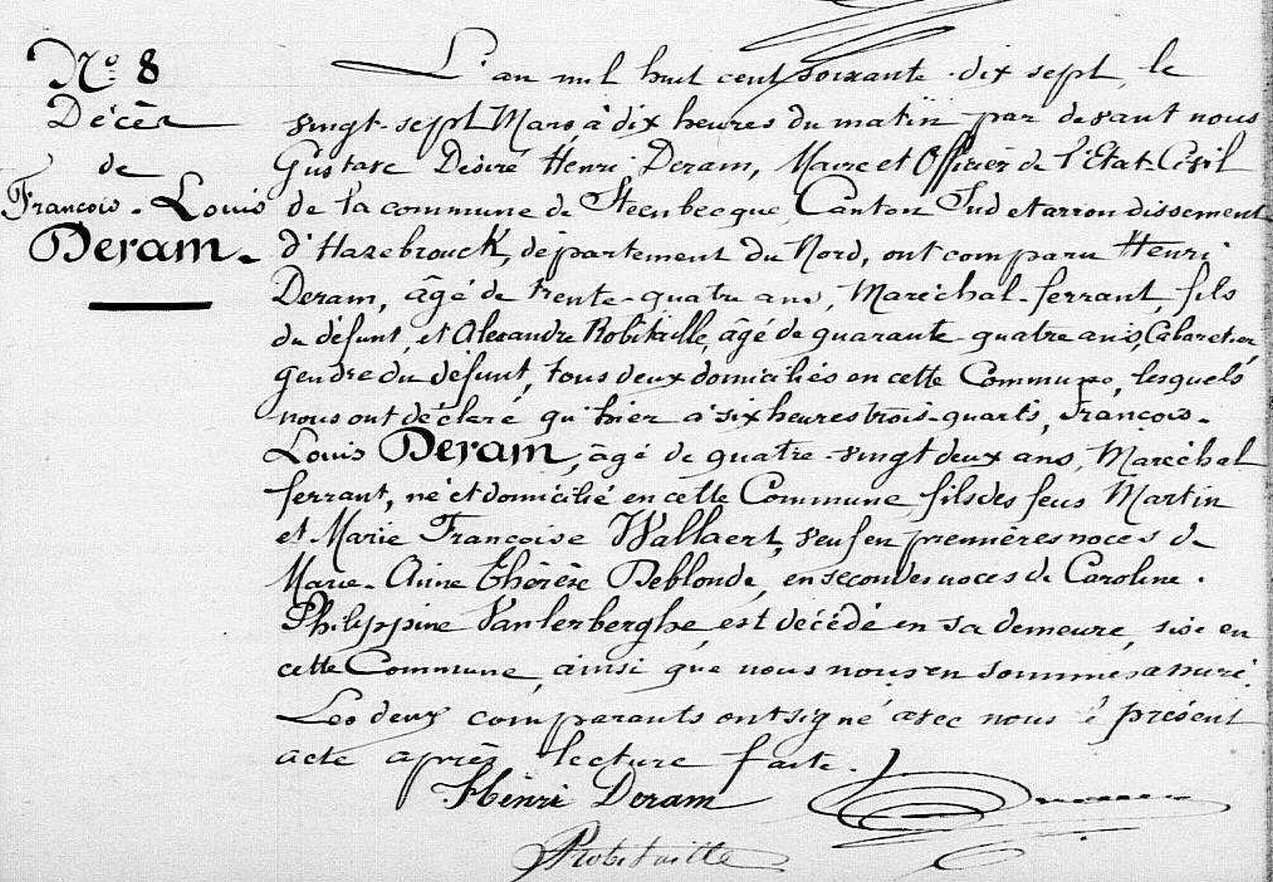 Nº 8
Décès
de
François-Louis
Deram.
L'an mil huit cent soixante-dix sept, le
vingt-sept Mars à dix heures du matin par devant nous
Gustave Désiré Henri Deram, Maire et Officier de l'Etat-Civil
de la commune de Steenbecque, Canton Sud et arrondissement
d'Hazebrouck, département du Nord, ont comparu Henri
Deram, âgé de trente-quatre ans, Maréchal-ferrant, fils
du défunt, et Alexandre Robitaille, âgé de quarante-quatre ans, Cabaretier,
gendre du défunt, tous deux domiciliés en cette Commune, lesquels
nous ont déclaré qu'hier à six heures trois-quarts, François-
Louis Deram, âgé de quatre-vingt deux ans, Maréchal
ferrant, né et domicilié en cette Commune, fils des feus Martin
et Marie Françoise Wallaert, veuf en premières noces de
Marie-Anne Thérèse Deblonde, en secondes noces de Caroline
Philyppine Vanlerberghe, est décédé en sa demeure, sise en
cette Commune, ainsi que nous nous en sommes assuré.
Les deux comparants ont signé avec nous le présent
acte après lecture faite.
Henri Deram
Robitaille